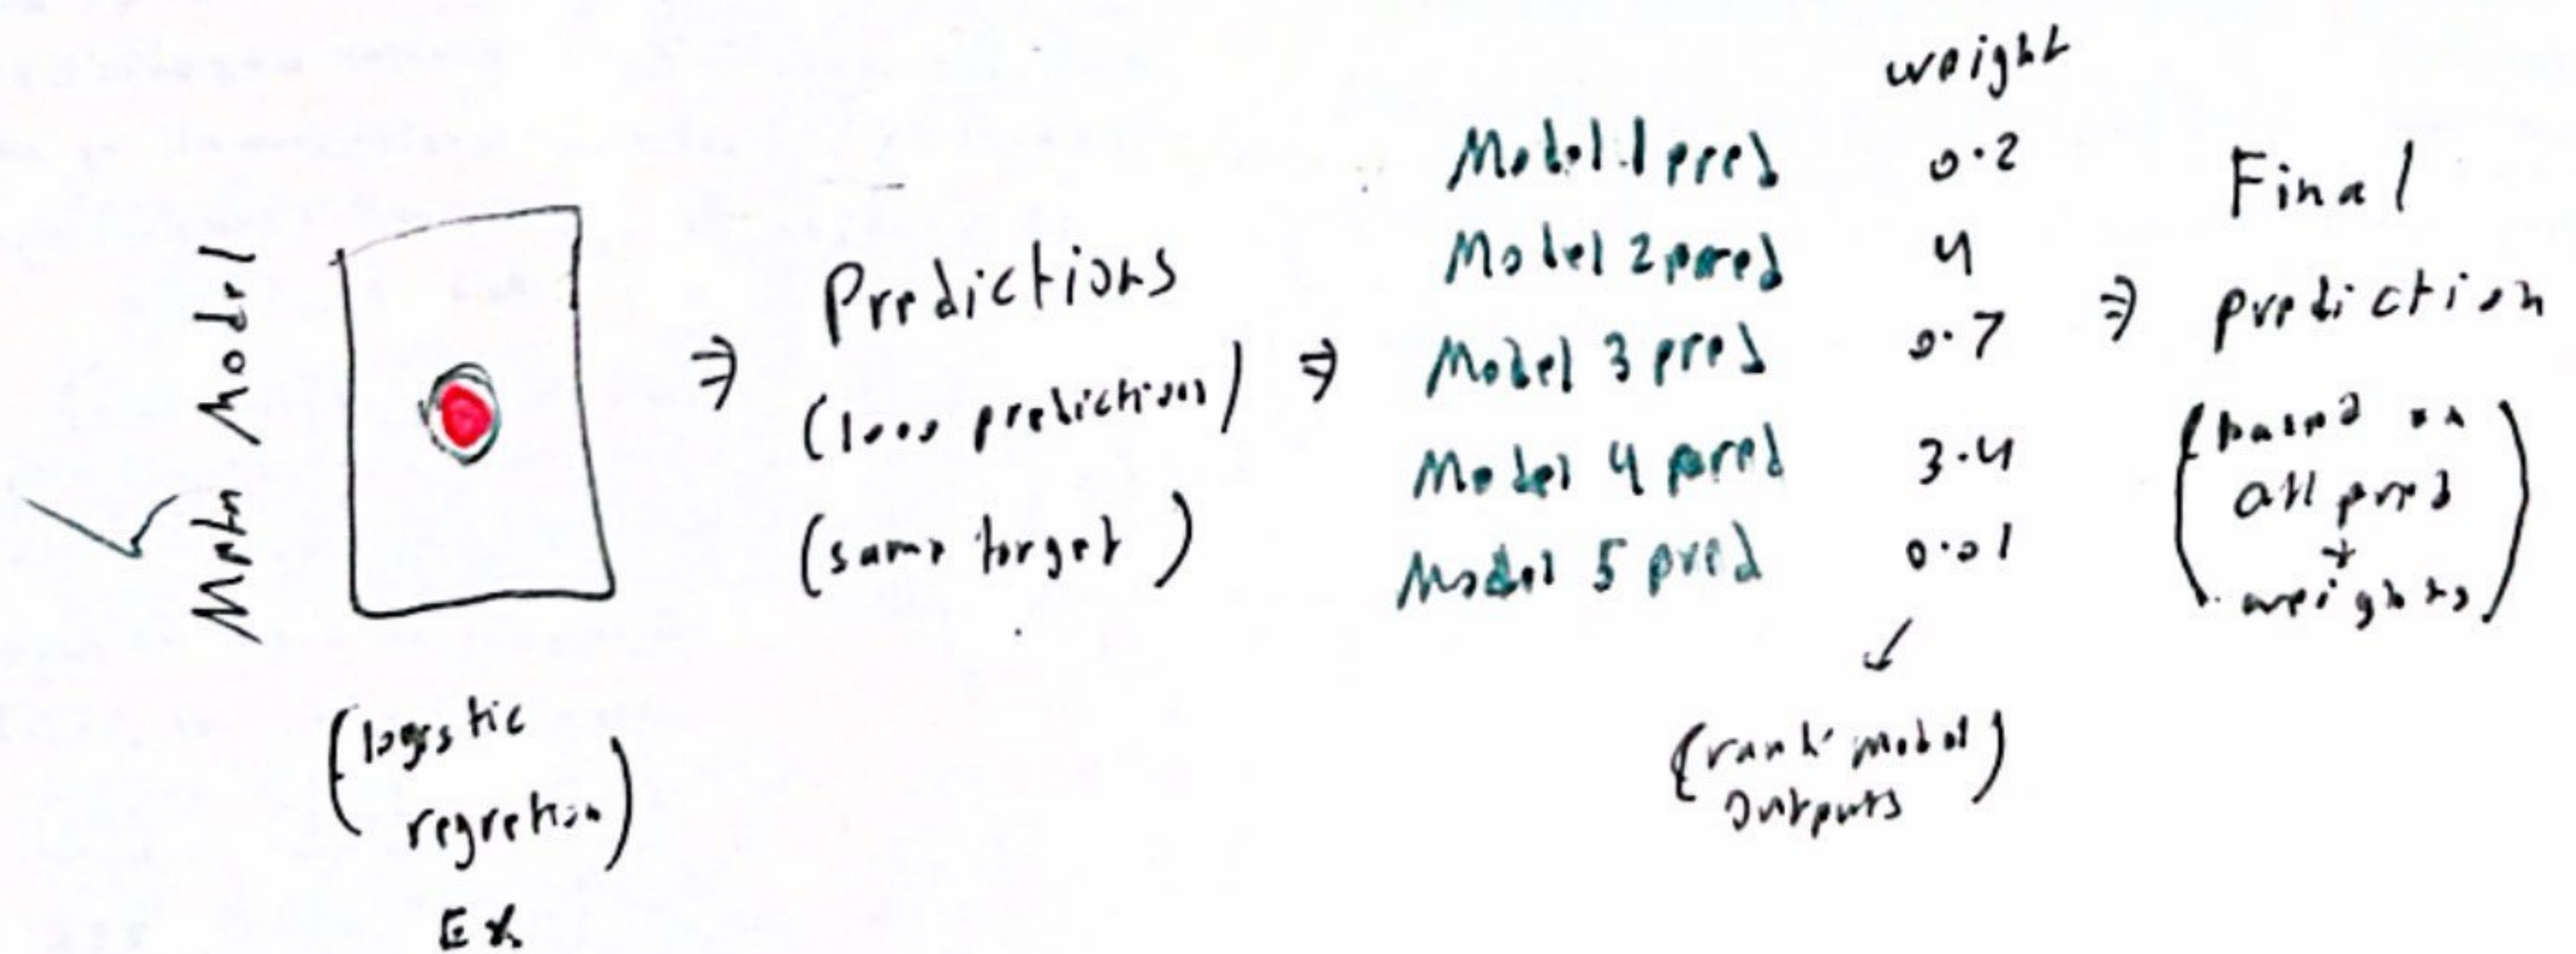 Meta Model
(logistic
regretion)
Ex
⇒ Predictions
(1000 predictions)
(same target)
⇒
weight
Model 1 pred 0.2
Model 2 pred 4
Model 3 pred 0.7
Model 4 pred 3.4
Model 5 pred 0.01
(rank model
outputs)
⇒ Final
prediction
(based on
all pred
+
weights)